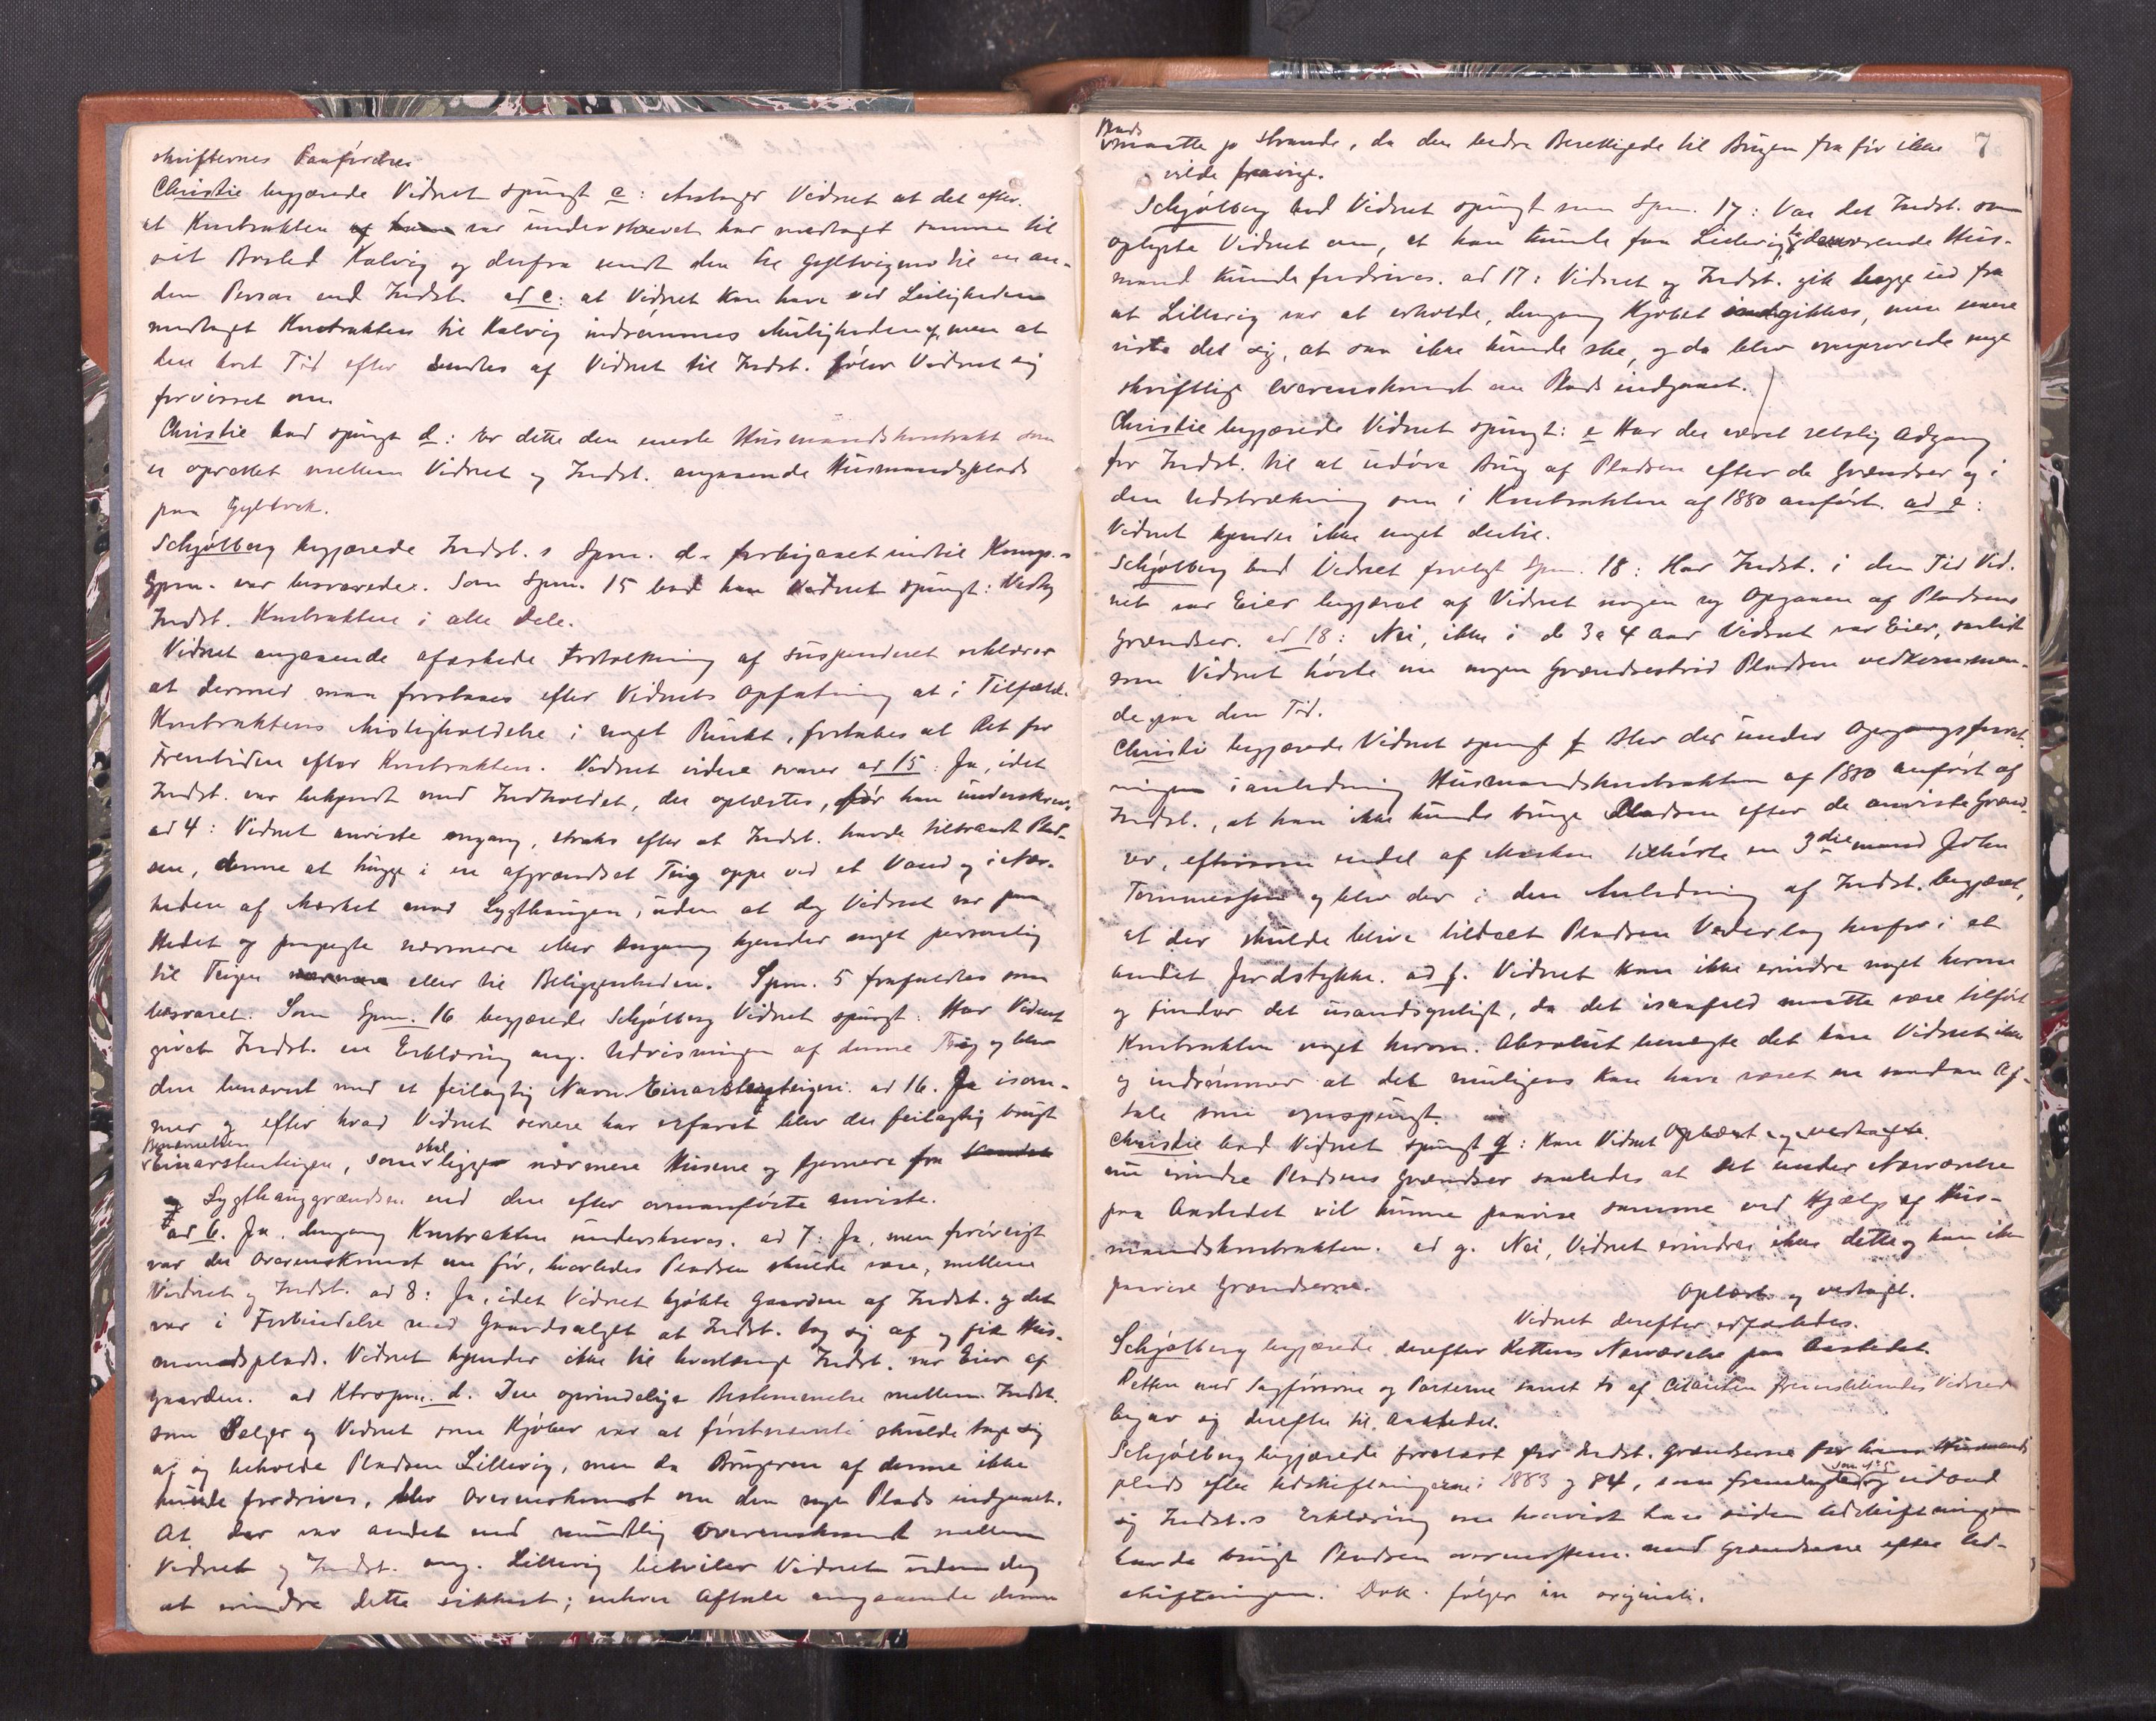 skrifternes Paaførelse.
Christie begjærede Vidnet spurgt c: Antager Vidnet at det efter-
at Kontrakten var underskrevet har medtaget samme til
sit Bosted Kalvig og derfra sendt den til Gyltvigen til en an-
den Person end Indst. ad c: at Vidnet kan have ved Leiligheden
medtaget Kontrakten til Kalvig indrømmes Muligheden af, men at
den kort Tid efter sendtes af Vidnet til Indst. føler Vidnet sig
forvisset om.
Christie bad spurgt d: Er dette den eneste Husmandskontrakt som
er oprettet mellem Vidnet og Indst. angaaende Husmandsplads
paa Gyltvik.
Schjølberg begjærede Indst.s Spm. d. forbigaaet indtil Komp.s
Spm. var besvarede. Som Spm. 15 bad han Vidnet spurgt: Vedtog
Indst. Kontrakten i alle Dele.
Vidnet angaaende afæskede Fortolkning af suspenderet erklærer
at dermed maa forstaaes efter Vidnets Opfatning at i Tilfælde
Kontraktens Misligholdelse i noget Punkt, fortabes al Ret for
Fremtiden efter Kontrakten. Vidnet videre svarer ad 15: Ja, idet
Indst. var bekjendt med Indholdet, der oplæstes, før han underskrev.
ad 4: Vidnet anviste engang, straks efter at Indst. havde tiltraadt Plad-
sen, denne at hugge i en afgrændset Teig oppe ved et Vand og i Nær-
heden af Merket mod Lygthaugen, uden at dog Vidnet var paa
Stedet og paapegte nærmere eller engang kjender noget personlig
til Teigen eller til Beliggenheden. Spm. 5 frafaldtes som
besvaret. Som Spm. 16 begjærede Schjølberg Vidnet spurgt: Har Vidnet
givet Indst. en Erklæring ang. Udvisningen af denne Teig og blev
den benævnt med et feilagtig Navn Einarsteigen. ad 16. Ja isom-
mer og efter hvad Vidnet senere har erfaret blev der feilagtig brugt
Benævnelsen
Einarsteigen, som skal ligge nærmere Husene og fjernere fra
Lygthauggrændsen end den efter ovenanførte anviste.
ad 6. Ja, dengang Kontrakten underskreves. ad 7: Ja, men forøvrigt
var der Overenskomst om før, hvorledes Pladsen skulde være, mellem
Vidnet og Indst. ad 8: Ja, idet Vidnet kjøbte Gaarden af Indst. og det
var i Forbindelse med Gaardsalget at Indst. tog sig af og fik Hus-
mandsplads. Vidnet kjender ikke til hvorlænge Indst. var Eier af
Gaarden. ad Ktrspm. d. Den oprindelige Bestemmelse mellem Indst.
som Sælger og Vidnet som Kjøber var at førstnævnte skulde tage sig
af og beholde Pladsen Lillevig, men da Brugeren af denne ikke
kunde fordrives, blev Overenskomst om den nye Plads indgaaet.
At der var andet end mundtlig Overenskomst mellem
Vidnet og Indst. ang. Lillevig betviler Vidnet uden dog
at erindre dette sikkert; enhver Aftale angaaende denne
7
Plads
maatte jo strande, da den bedre Berettigede til Brugen fra før ikke
vilde fravige.
Schjølberg bad Vidnet spurgt som Spm. 17: Var det Indst. som
oplyste Vidnet om, at han kunde faa Lillevig, daværende Hus-
mand kunde fordrives. ad 17: Vidnet og Indst. gik begge ud fra
at Lillevig var at erholde, dengang Kjøbet indgikkes, men senere
viste det sig, at saa ikke kunde ske, og da blev omprøvede nye
skriftlig Overenskomst om Plads indgaaet.
Christie begjærede Vidnet spurgt: e Har der været retslig Adgang
for Indst. til at udøve Brug af Pladsen efter de Grændser og i
den Udstrækning som i Kontrakten af 1880 anført. ad e:
Vidnet kjender ikke noget dertil.
Schjølberg bad Vidnet forelagt Spm. 18: Har Indst. i den Tid Vid-
net var Eier begjæret af Vidnet nogen ny Opgaaen af Pladsens
Grændser. ad 18: Nei, ikke i de 3 a 4 Aar Vidnet var Eier, saalidt
som Vidnet hørte om nogen Grændsestrid Pladsen vedkommen-
de paa den Tid.
Christie begjærede Vidnet spurgt f Blev der under Opgangsforret-
ningen i anledning Husmandskontrakten af 1880 anført af
Indst., at han ikke kunde bruge Pladsen efter de anviste Grænd-
ser, eftersom endel af Marken tilhørte en 3die mand John
Tommessen og blev der i den Anledning af Indst. begjært,
at der skulde blive tildelt Pladsen Vederlag herfor i et
andet Jordstykke. ad f. Vidnet kan ikke erindre noget herom
og finder det usandsynligt, da det isaafald maatte være tilført
Kontrakten noget herom. Absolut benægte det kan Vidnet ikke
og indrømmer at det muligens kan have været en saadan Af-
tale som omspurgt. Oplæst og vedtaget.
Christie bad Vidnet spurgt g: Kan Vidnet
nu erindre Pladsens Grændser saaledes at det under Nærværelse
paa Aastedet vil kunne paavise samme ved Hjælp af Hus-
mandskontrakten. ad g. Nei, Vidnet erindrer ikke dette og kan ikke
paavise Grændserne.
Oplæst og vedtaget.
Vidnet derefter edfæstedes.
Schjølberg begjærede derefter Rettens Nærværelse paa Aastedet.
Retten med Sagførerne og Parterne samt to af Citanten fremstillendes Vidner
begav sig derefter til Aastedet.
Schjølberg begjærede forelæst for Indst. Grændserne for hans Husmands-
plads efter Udskiftningerne i 1883 og 84, som fremlagdes som No 5 og udbad
sig Indst.s Erklæring om hvorvidt han siden Udskiftningen
havde brugt Pladsen overensstem. med Grændserne efter Ud-
skiftningen. Dok. følger in originali.